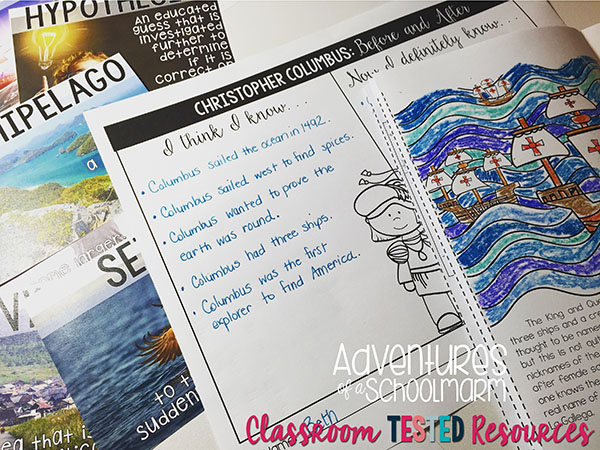 HYPOTHES
An educated
guess that is
investigated
further to
determine
if it
is correct or
IPELAGO
a
SE
to t
sudden
CHRISTOPHER COLUMBUS: Before and After
I think I know. . . .
• Columbus sailed the ocean in 1492.
• Columbus sailed west to find spices.
• Columbus wanted to prove the
earth was round.
• Columbus had three ships.
• Columbus was the first
explorer to find America.
Name: Beth
Now I definitely know. . . .
The King and Que
three ships and a cre
thought to be name
but this is not quit
nicknames of the
after female sa
one knows the
real name of
La Gallega.
Adventures
of a Schoolmarm
Classroom TESTED Resources